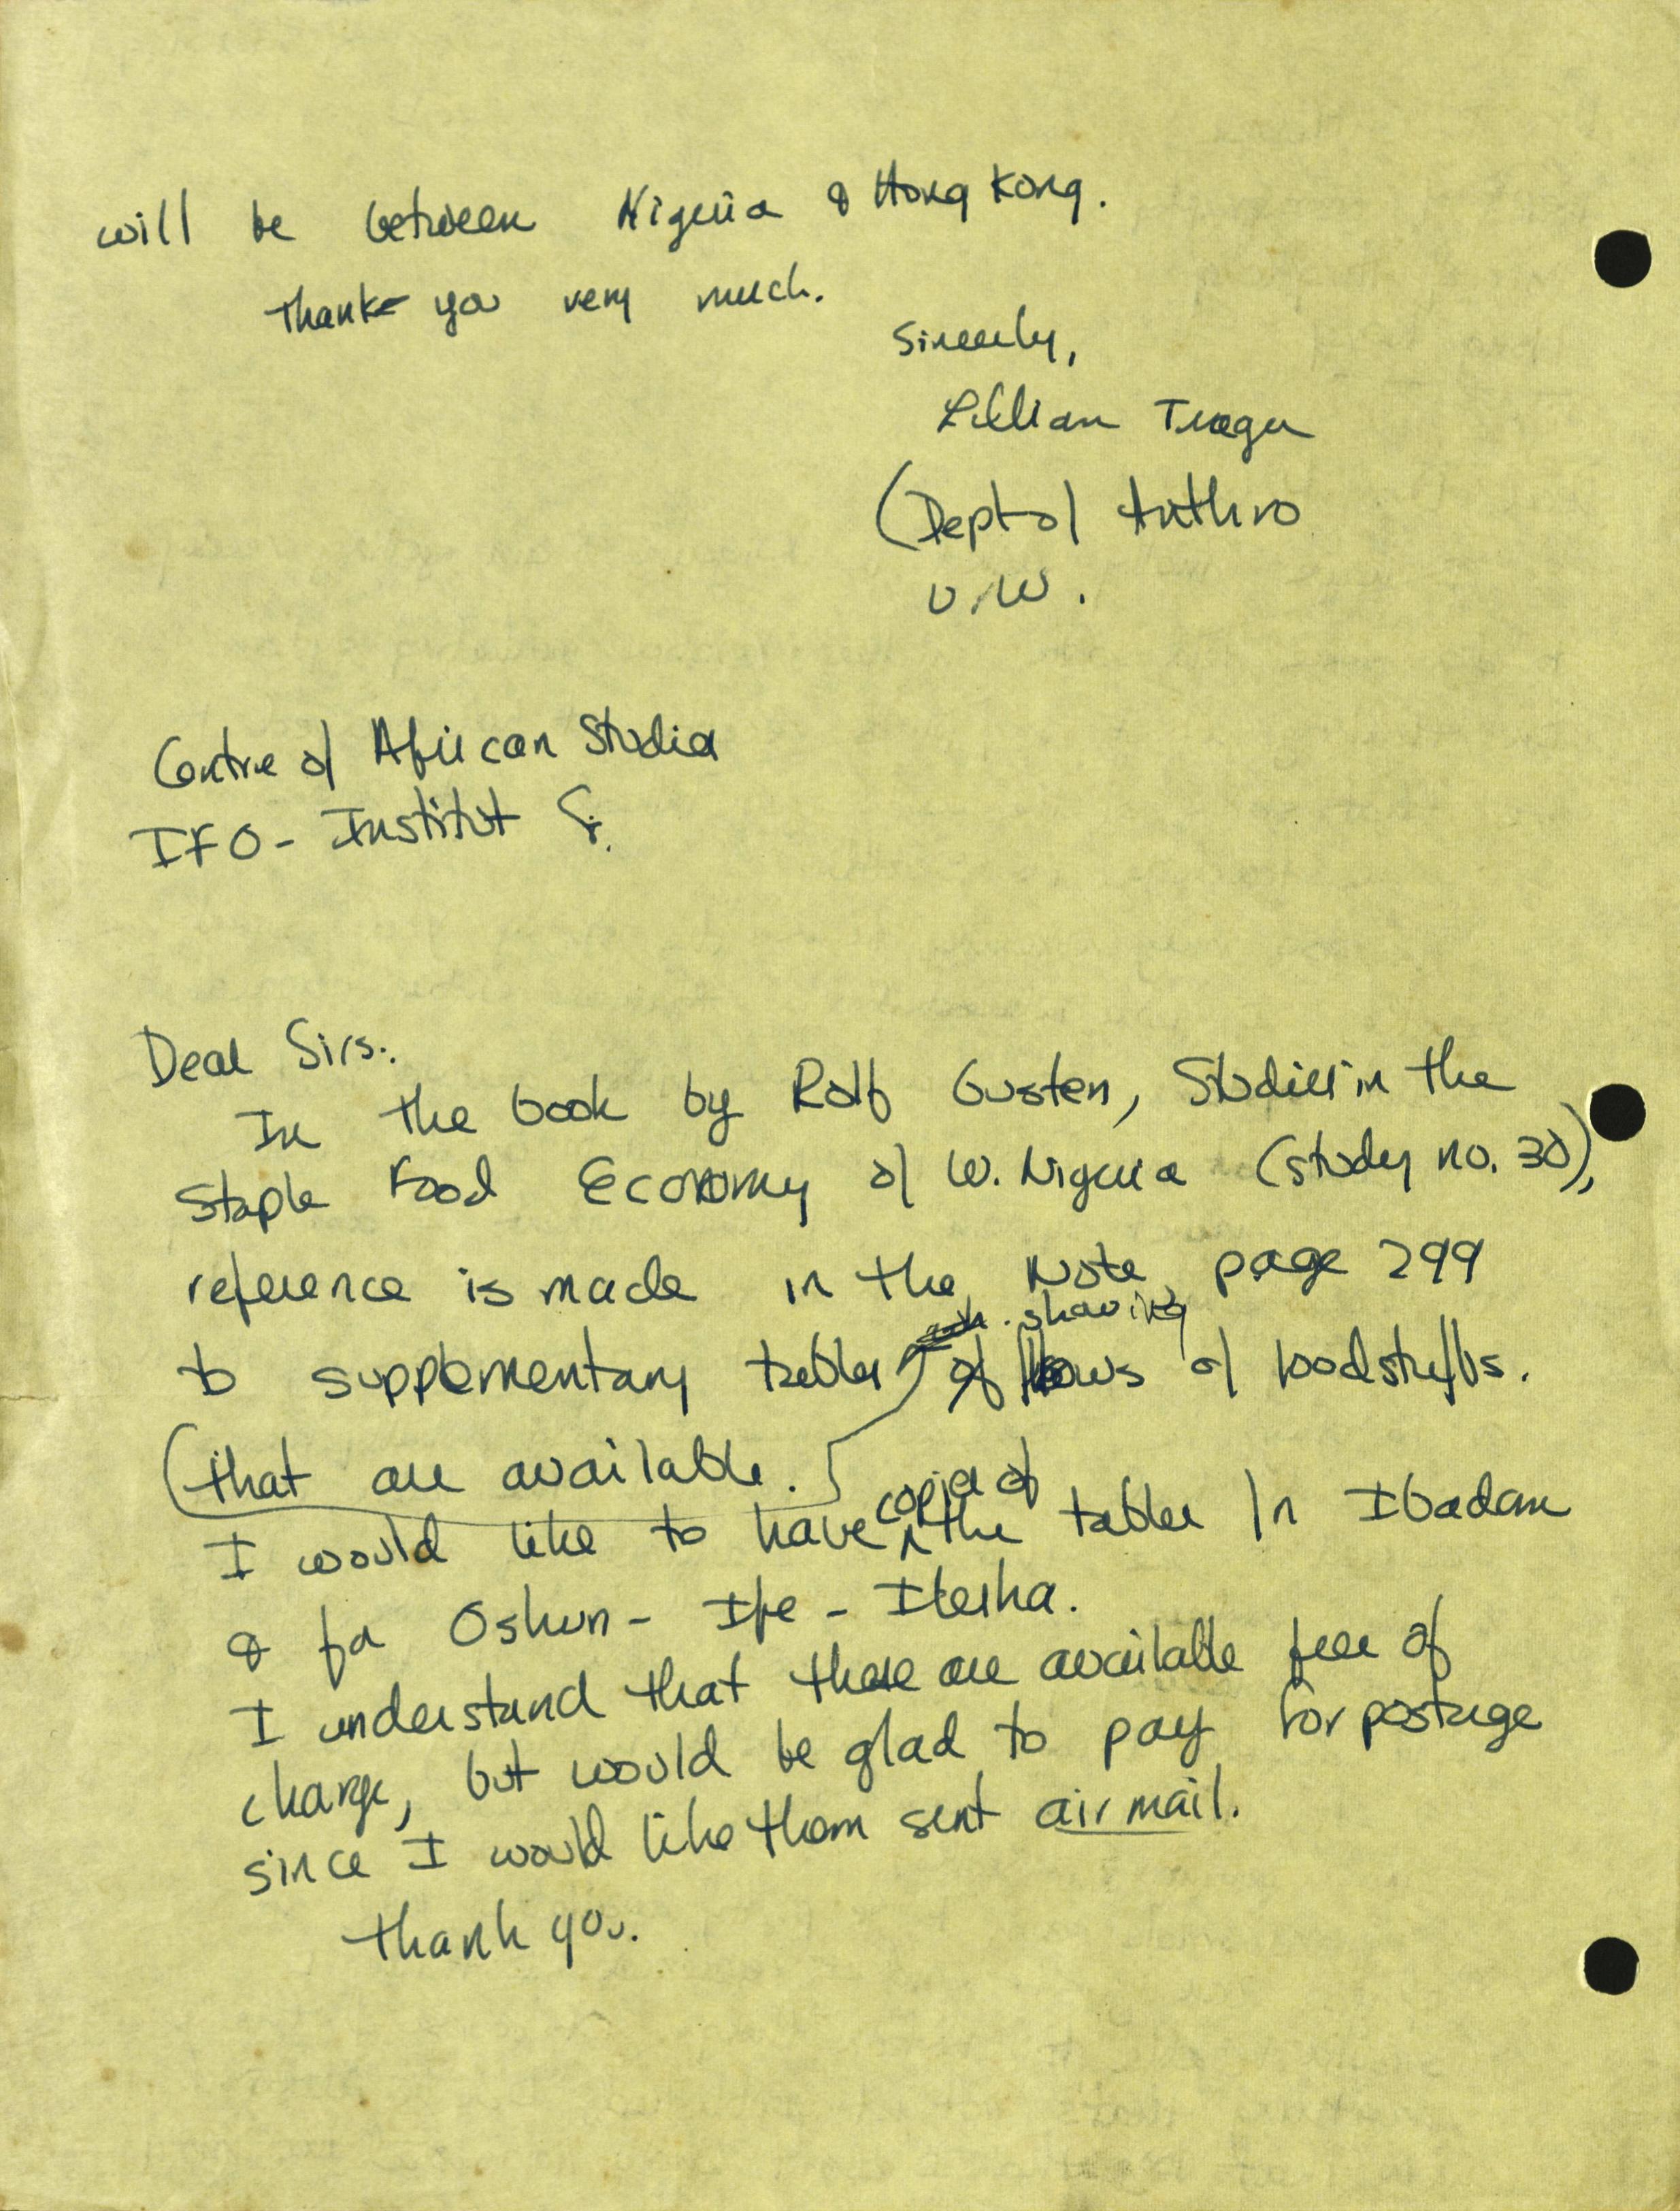 will be between Nigeria & Hong Kong.
Thank you very much.
Sincerely,
Lillian Trager
(Dept of Anthro
U.W.
Centre of African Studies
IFO - Institut f.
Dear Sirs:
In the book by Rolf Gusten, Studies in the
Staple Food Economy of W. Nigeria (study no. 30),
reference is made in the Note, page 299
showing
to supplementary tables of flows of foodstuffs.
(that are available.
copies of
I would like to have the tables for Ibadan
& for Oshun - Ife - Ilesha.
I understand that these are available free of
charge, but would be glad to pay for postage
since I would like them sent air mail.
Thank you.